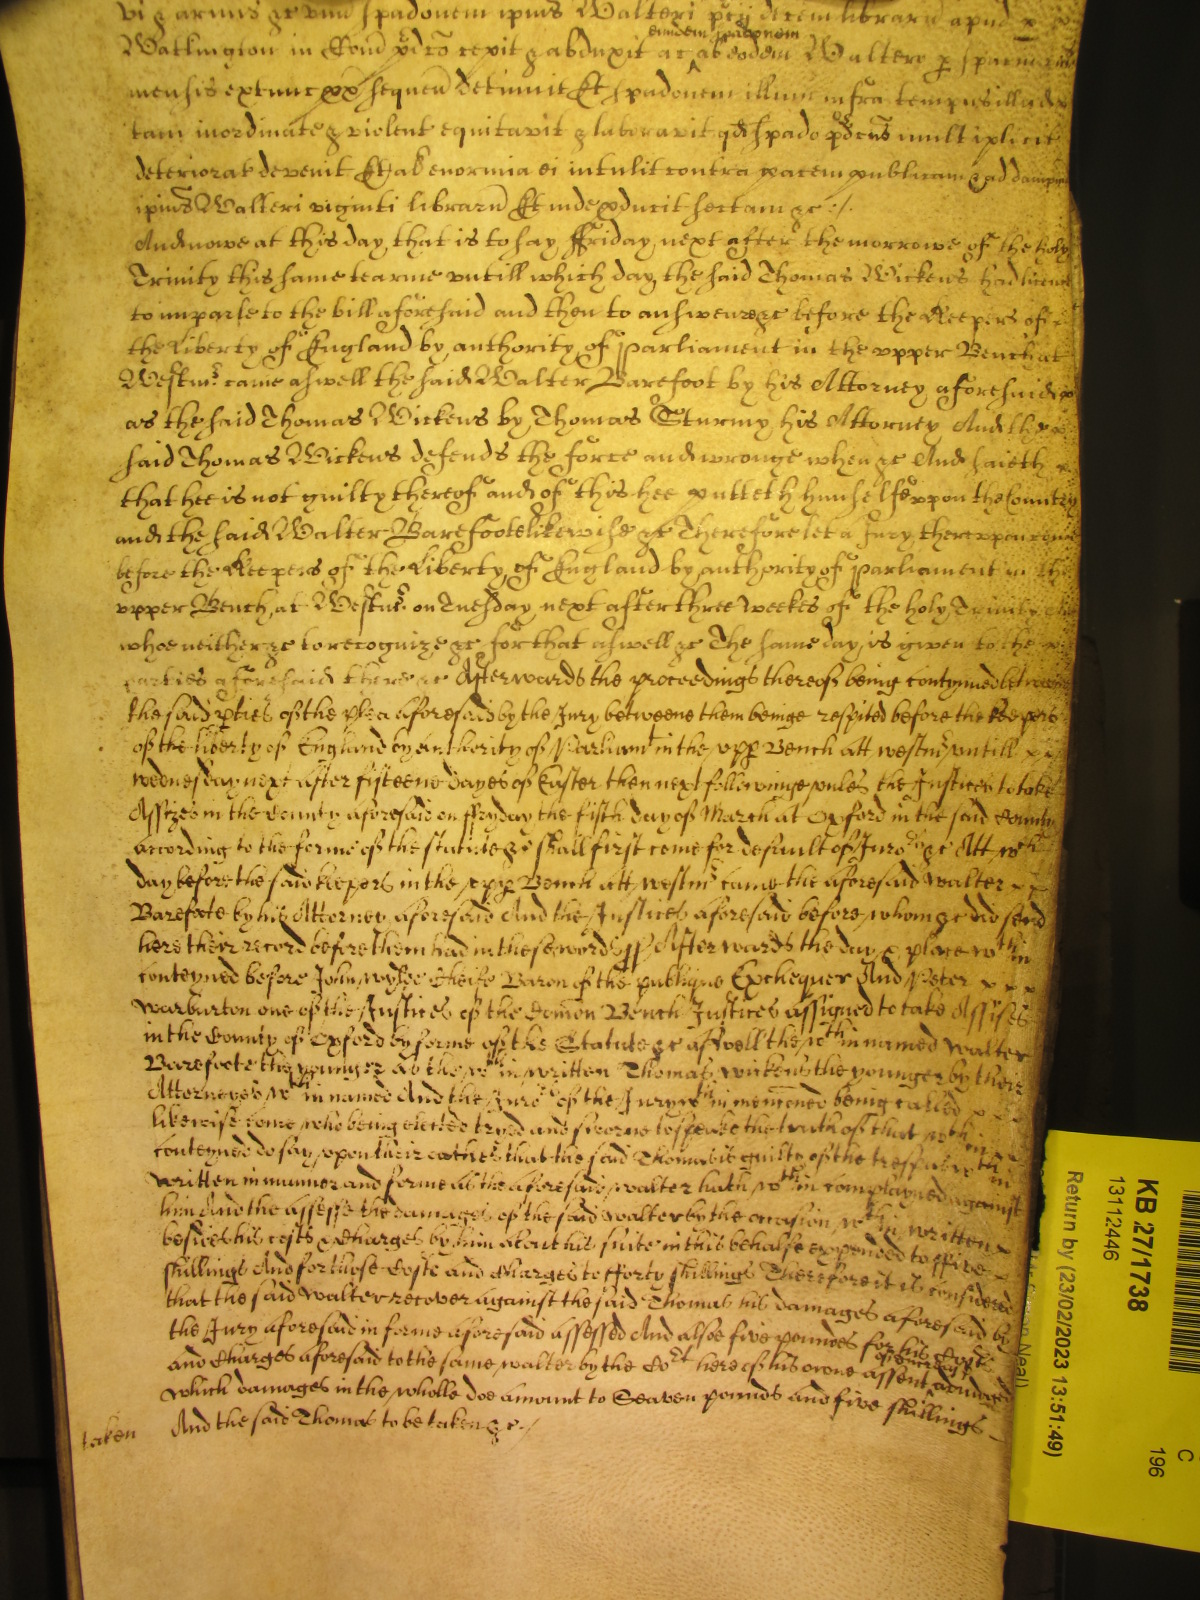 vi & armis &c unu spadonem ipius Walteri p'cij decem librar apud
eundem spadonem
Watlington in Com p'd co cepit & abduxit ac ab eodem Waltero p spacium
mensis extunc px sequen detinuit Et spadonem illum infra tempus illud
tam inordinate & violent equitavit & laboravit qd spado p'dcus multiplicit
deteriorat devenit Et al enormia ei intulit contra pacem publicam & ad dampnu
ipius Walteri viginti librar Et inde p'ducit sectam &c ./.
And nowe at this day, that is to say, ffriday next after the morrowe of the holy
Trinity this same tearme untill which day the said Thomas Wickens had licence
to imparle to the bill aforesaid and then to answere &c before the Keepers of
the Liberty of England by authority of Parliament in the upper Bench at
Westmr came aswell the said Walter Barefoot by his Attorney aforesaid
as the said Thomas Wickens by Thomas Sturmy his Attorney And the
said Thomas Wickens defends the force and wronge when &c And saieth
that hee is not guilty thereof and of this hee putteth himselfe uppon the Country
and the said Walter Barefoote likewise &c Therefore let a Jury thereuppon come
before the Keepers of the Liberty of England by authority of Parliament in the
upper Bench at Westmr on Tuesday next after three weekes of the holy Trinity
whoe neither &c to recognize &c for that aswell &c The same day is given to the
parties aforesaid there &c Afterwards the proceedings thereof being contynued betweene
the said pties of the plea aforesaid by the Jury betweene them beinge respited before the keepers
of the liberty of England by authority of Parliamt in the upp Bench att westmr untill
wednesday next after fifteene dayes of Easter then next followinge unles the Justices to take
Assizes in the County aforesaid on ffryday the fifth day of March at Oxford in the said County
according to the forme of the statute &c shall first come for default of Juro &c Att wch
day before the said keepers in the upp Bench att westmr came the aforesaid Walter
Barefoote by his Attorney aforesaid And the Justices aforesaid before whom &c did send
here their record before them had in these words ss Afterwards the day & place wthin
conteyned before John wylde Cheife Baron of the publique Exchequer And Peter
Warburton one of the Justices of the Comon Bench Justices assigned to take Assises
in the County of Oxford by forme of the Statute &c aswell the wthin named Walter
Barefoote the younger as the wthin written Thomas wickens the younger by their
Attorneyes wthin named And the Juro of the Jury wthin menconed being called
likewise come who being elected tryed and sworne to speake the truth of that wthin
conteyned do say upon their oathes that the said Thomas is guilty of the trespas wthin
written in manner and forme as the aforesaid walter hath wthin complayned against
him And the assesse the damages of the said walter by the occasion wthin written
besides his costs & charges by him about his suite in this behalfe expended to ffive
shillings And for those Costs and Charges to fforty shillings Therefore it is considered
that the said walter recover against the said Thomas his damages aforesaid by
the Jury aforesaid in forme aforesaid assessed And alsoe five poundes for his Costs
and Charges aforesaid to the same walter by the Cort here of his owne assent adiudged
which damages in the wholle doe amount to Seaven pounds and five shillings
taken And the said Thomas to be taken &c ./
KB 27/1738
13112446
Return by (23/02/2023 13:51:49)
196
C